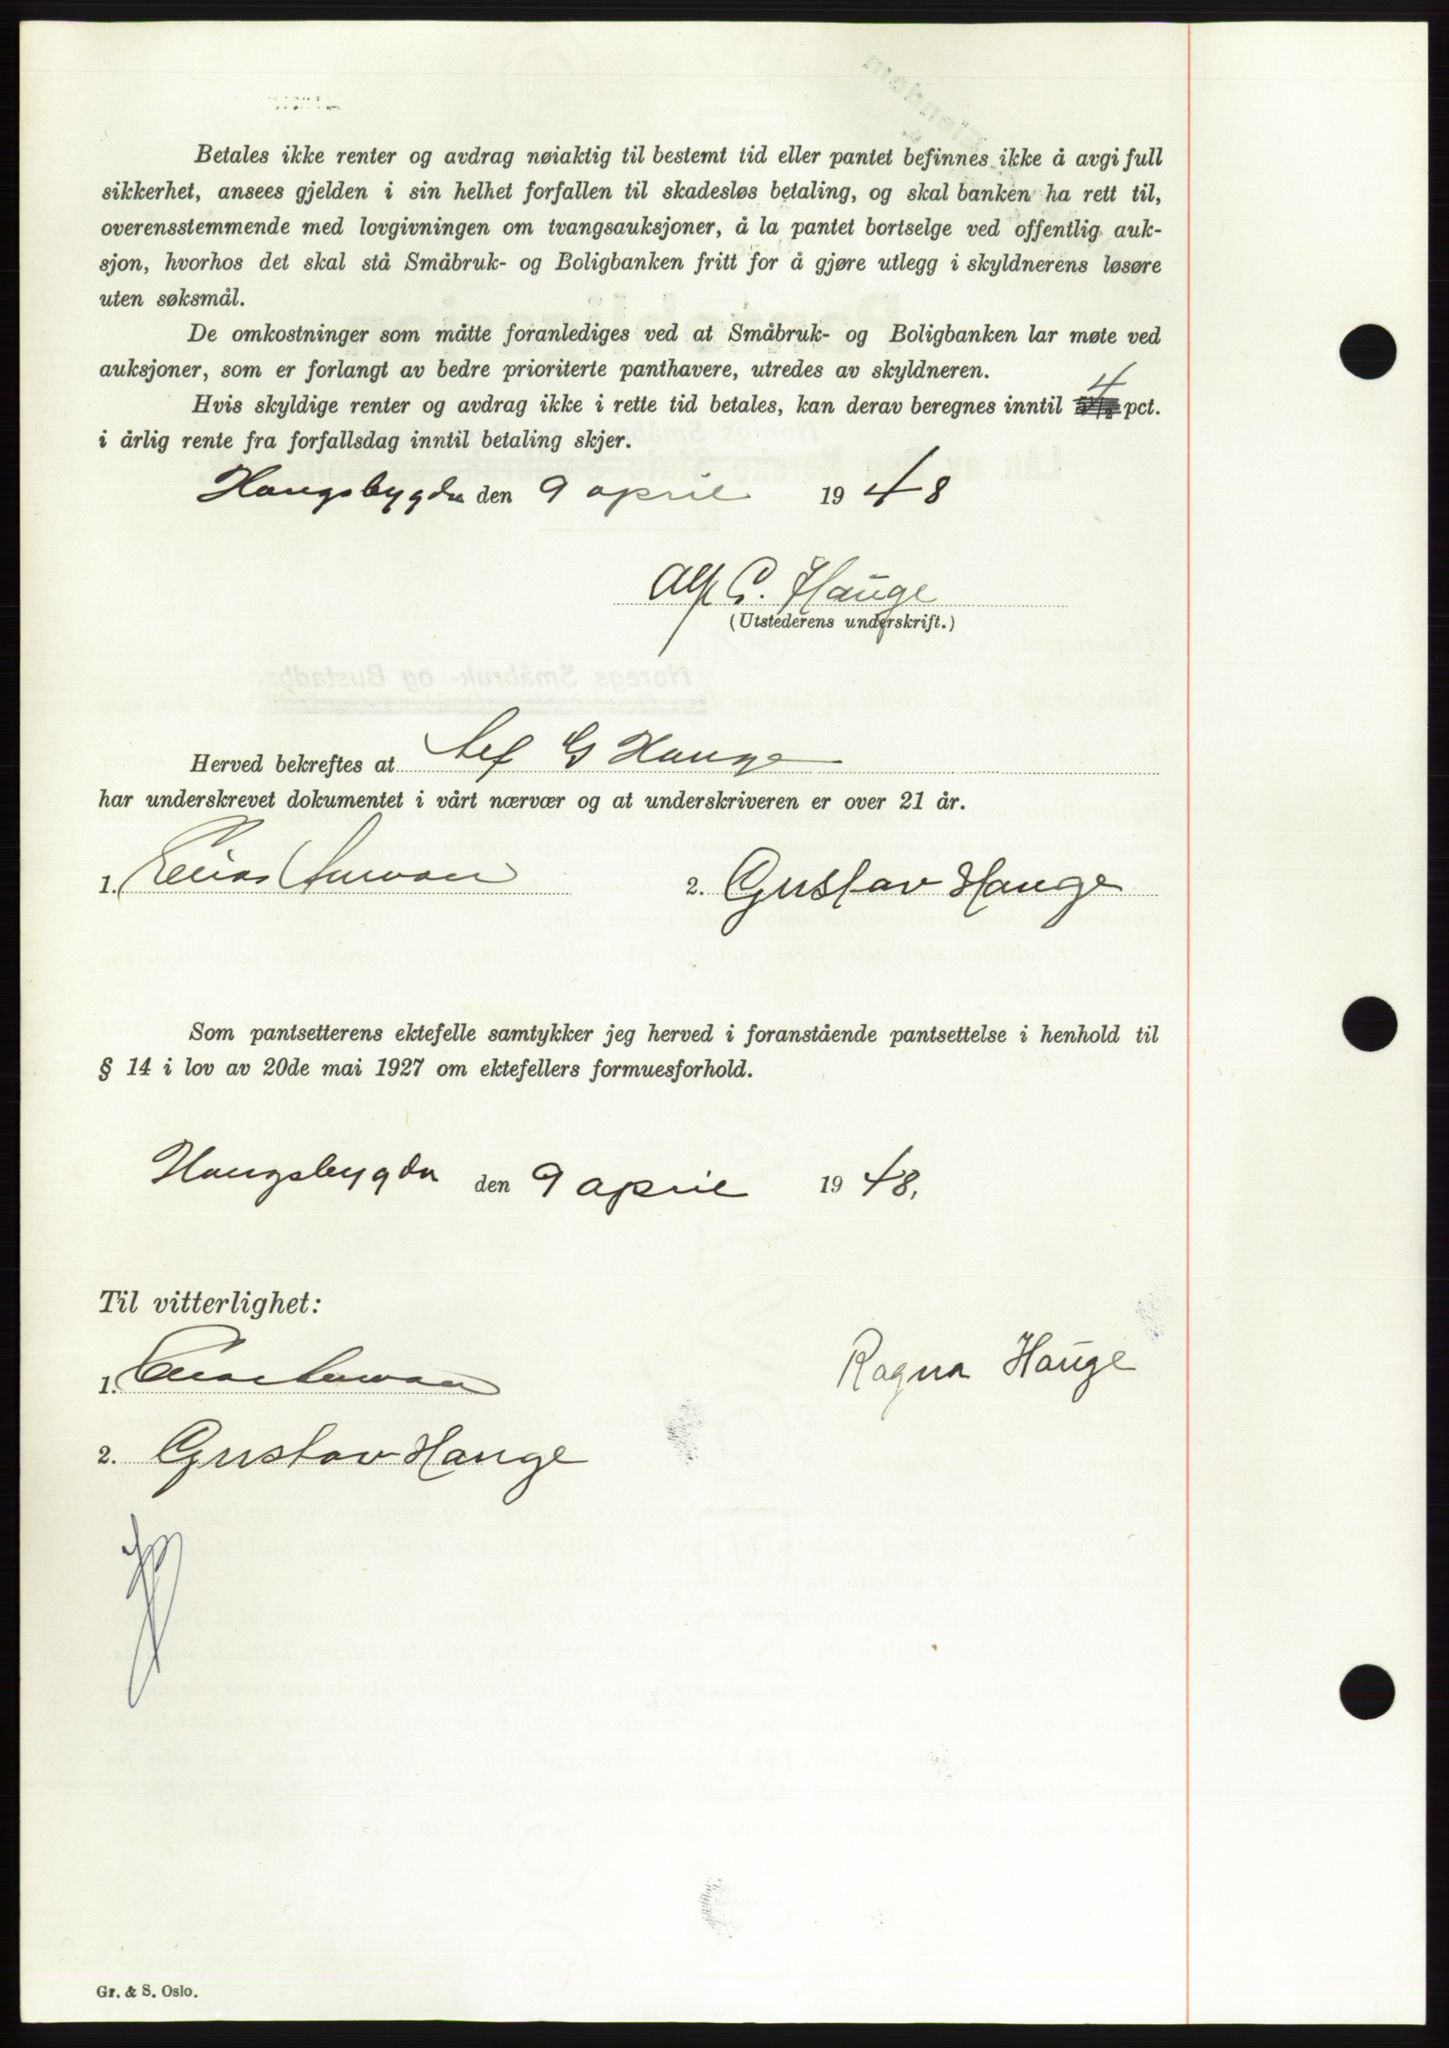 Betales ikke renter og avdrag nøiaktig til bestemt tid eller pantet befinnes ikke å avgi full
sikkerhet, ansees gjelden i sin helhet forfallen til skadesløs betaling, og skal banken ha rett til,
overensstemmende med lovgivningen om tvangsauksjoner, å la pantet bortselge ved offentlig auk-
sjon, hvorhos det skal stå Småbruk- og Boligbanken fritt for å gjøre utlegg i skyldnerens løsøre
uten søksmål.
De omkostninger som måtte foranlediges ved at Småbruk- og Boligbanken lar møte ved
auksjoner, som er forlangt av bedre prioriterte panthavere, utredes av skyldneren.
Hvis skyldige renter og avdrag ikke i rette tid betales, kan derav beregnes inntil 4 pct.
i årlig rente fra forfallsdag inntil betaling skjer.
Haugsbygda den 9 april 1948
Alf G. Hauge
(Utstederens underskrift.)
Herved bekreftes at Alf G Hauge
har underskrevet dokumentet i vårt nærvær og at underskriveren er over 21 år.
1. Elias 2. Gustav Hauge
Som pantsetterens ektefelle samtykker jeg herved i foranstående pantsettelse i henhold til
§ 14 i lov av 20de mai 1927 om ektefellers formuesforhold.
Haugsbygda den 9 april 1948.
Til vitterlighet:
1. Elias
Ragna Hauge
2. Gustav Hauge
Gr. & S. Oslo.